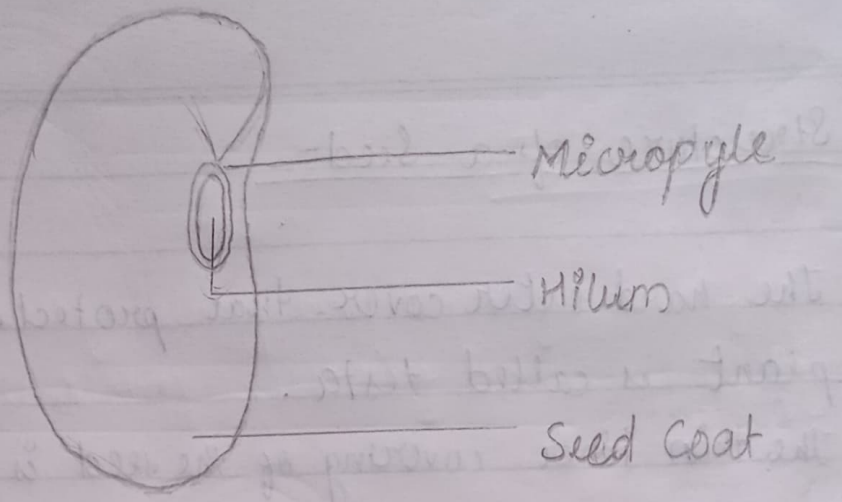 Micropyle
Hilum
Seed Coat